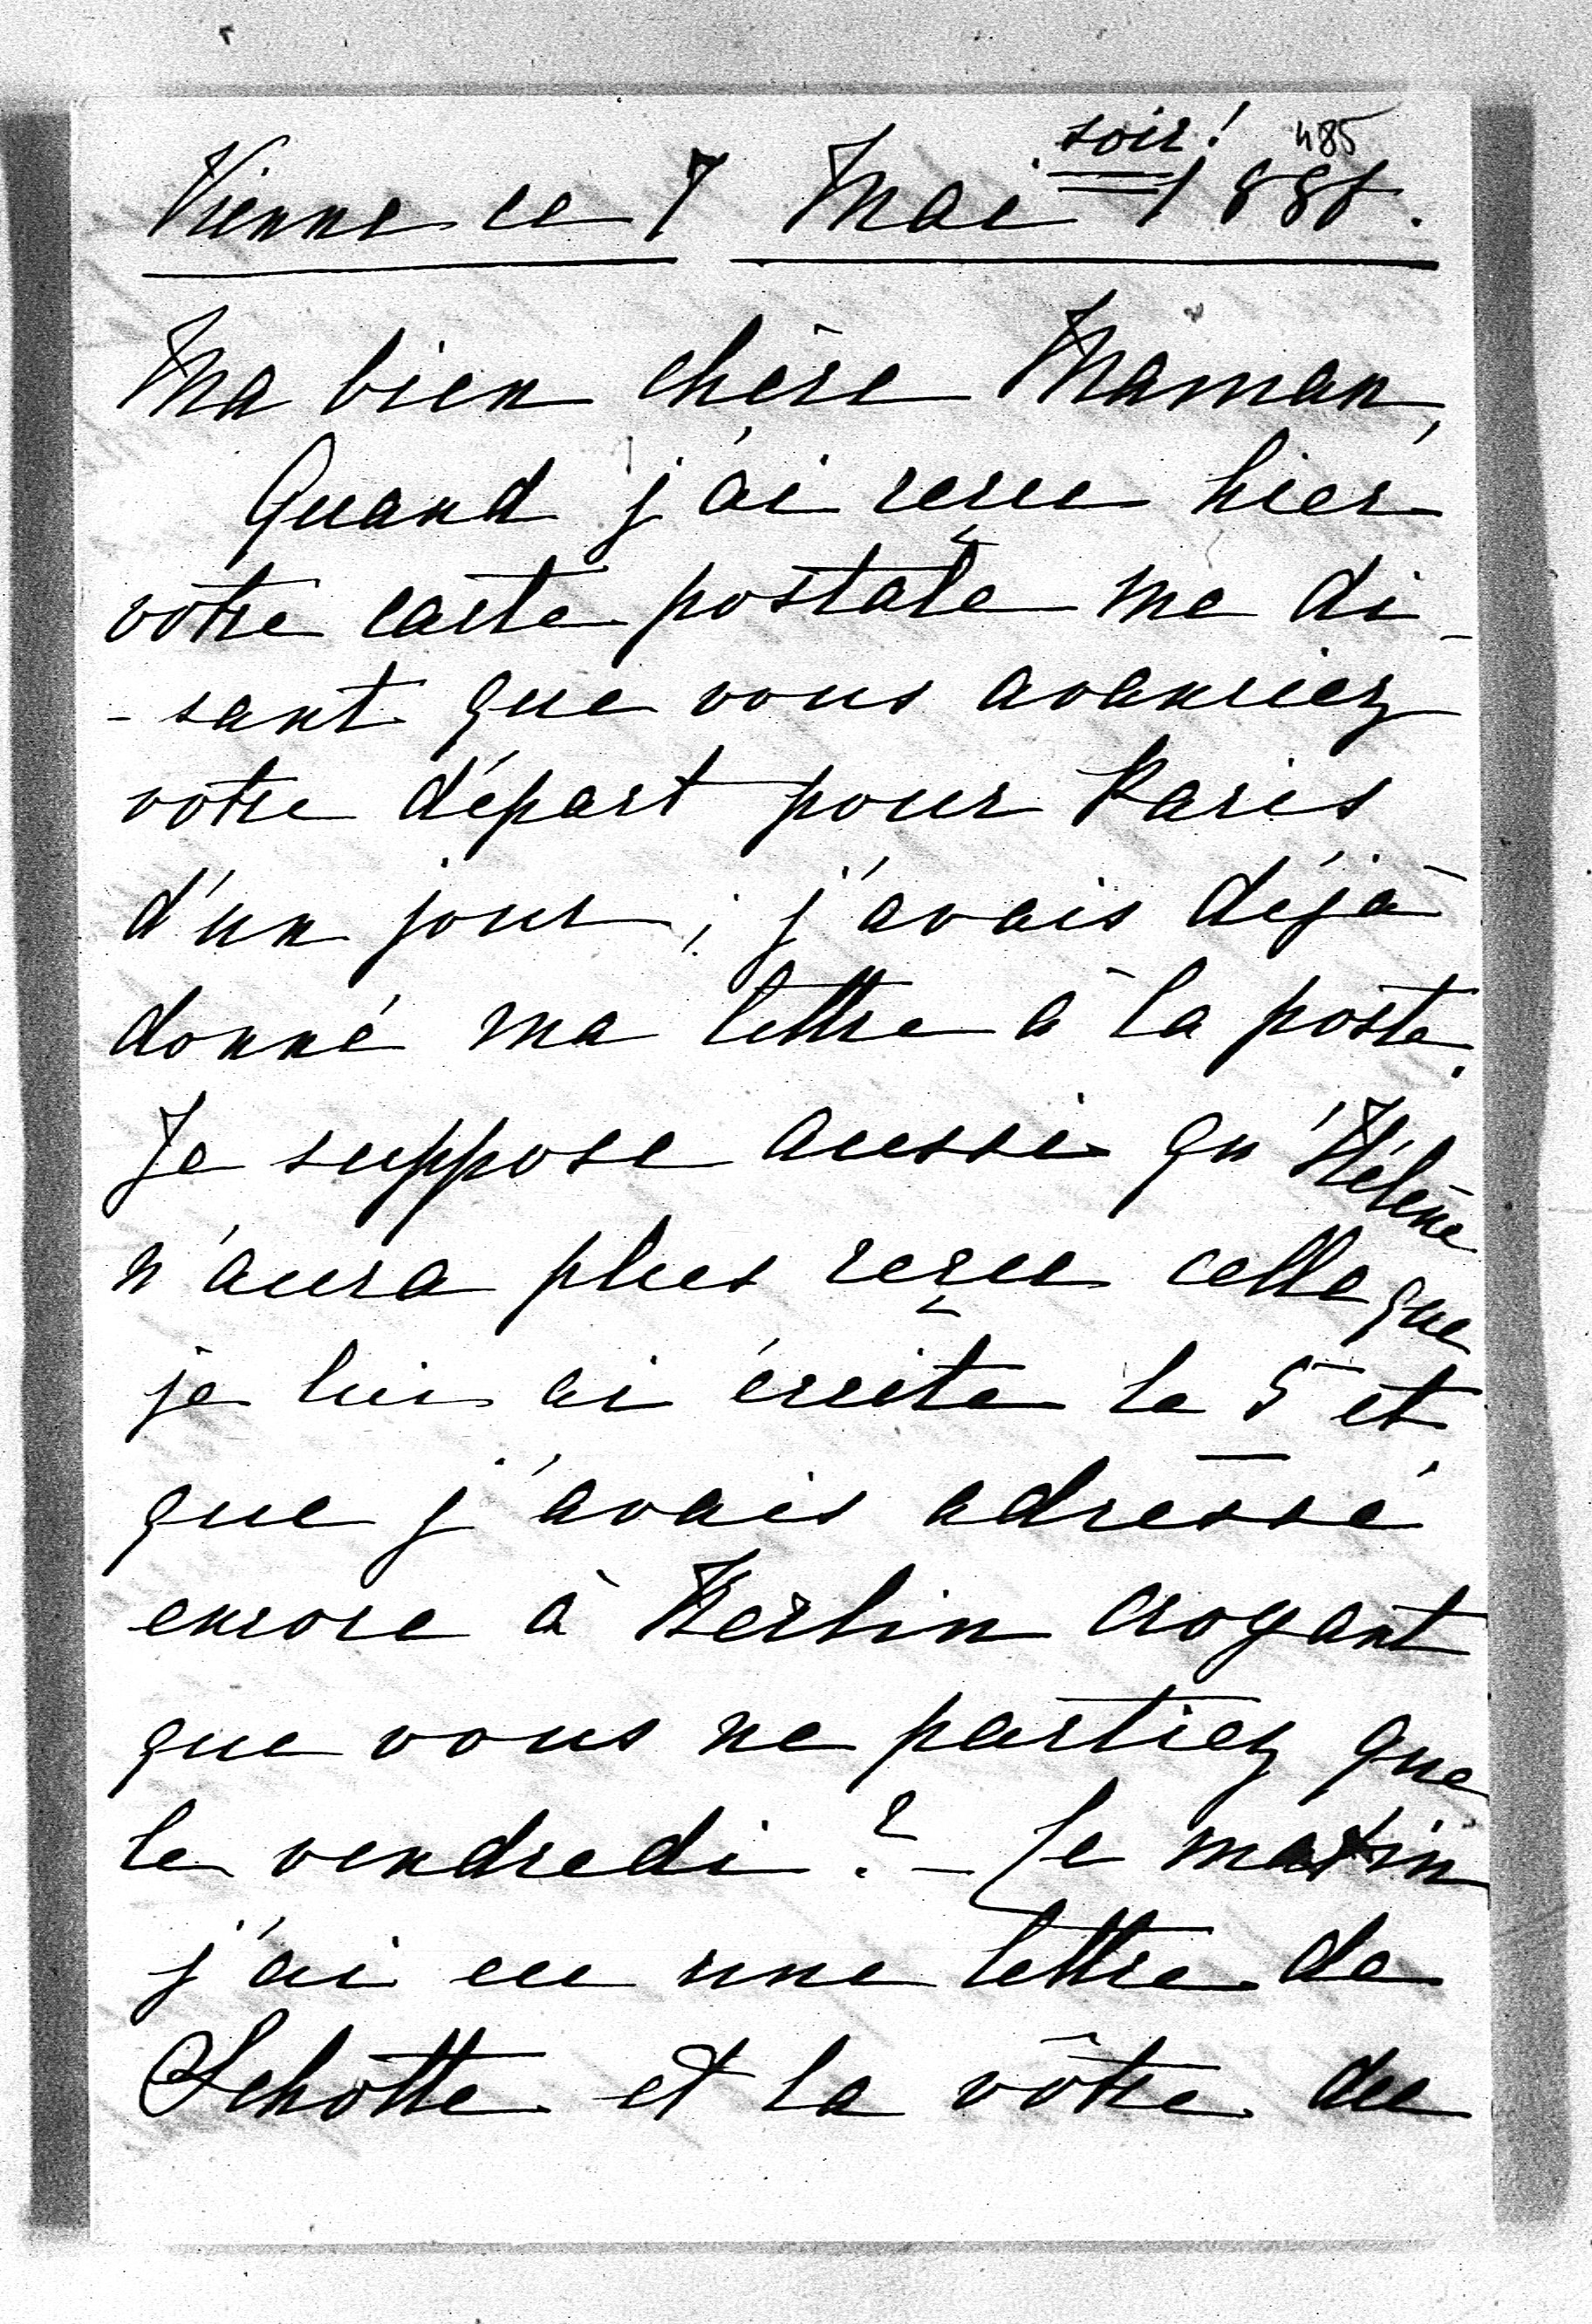 soir! 485
Vienne ce 7 Mai 1881.
Ma bien chère Maman,
Quand j'ai reçu hier
votre carte postale me di-
-sant que vous avanciez
votre départ pour Paris
d'un jour, j'avais déjà
donné ma lettre à la poste.
Je suppose aussi qu'Hélène
n'aura plus reçu celle que
je lui ai écrite le 5 et
que j'avais adressé
encore à Berlin croyant
que vous ne partiez que
le vendredi? – Ce matin
j'ai eu une lettre de
Lehotte et la vôtre du